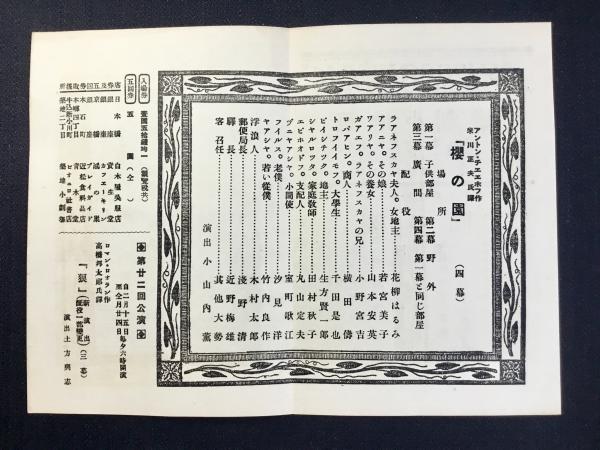 アントン・チエエホフ作
米川正夫氏譯
『櫻の園』
(四幕)
場所
第一幕 子供部屋 第二幕 野外
第三幕 廣間 第四幕 第一幕と同じ部屋
配役
ラアネフスカヤ夫人。女地主…花柳はるみ
アアニヤ。その娘…若宮美子
ワアリヤ。その養女…山本安英
ガアエフ。ラアネフスカヤの兄…小野宮吉
ロパアヒン。商人…横田儔
トロフイイモフ。大學生…千田是也
ピイシチク。地主…生方賢一郎
シヤルロツタ。家庭敎師…田村秋子
エピホオドフ。支配人…丸山定夫
ヅニヤアシヤ。小間使…室町歌江
フイルス。老僕…汐見洋
ヤアシヤ。若い從僕…竹内良作
浮浪人…木村太郎
郵便局長…淺野清
驛長…近野梅雄
客 召任…其他大勢
演出 小山内薫
◆第廿二回公演◆
自二月十五日毎夕六時開演
至仝月廿四日
ロマン・ロオラン作
高橋邦太郎氏譯
『狼』(新演出)(三幕)
(配役一部變更)
演出 土方與志
入場券 壹圓五拾錢均一(觀覽税共)
五回券 五圓(仝)
客券及五回券取扱所
日本橋 白木屋呉服店
銀座 資生堂
銀座 カフエーキリン